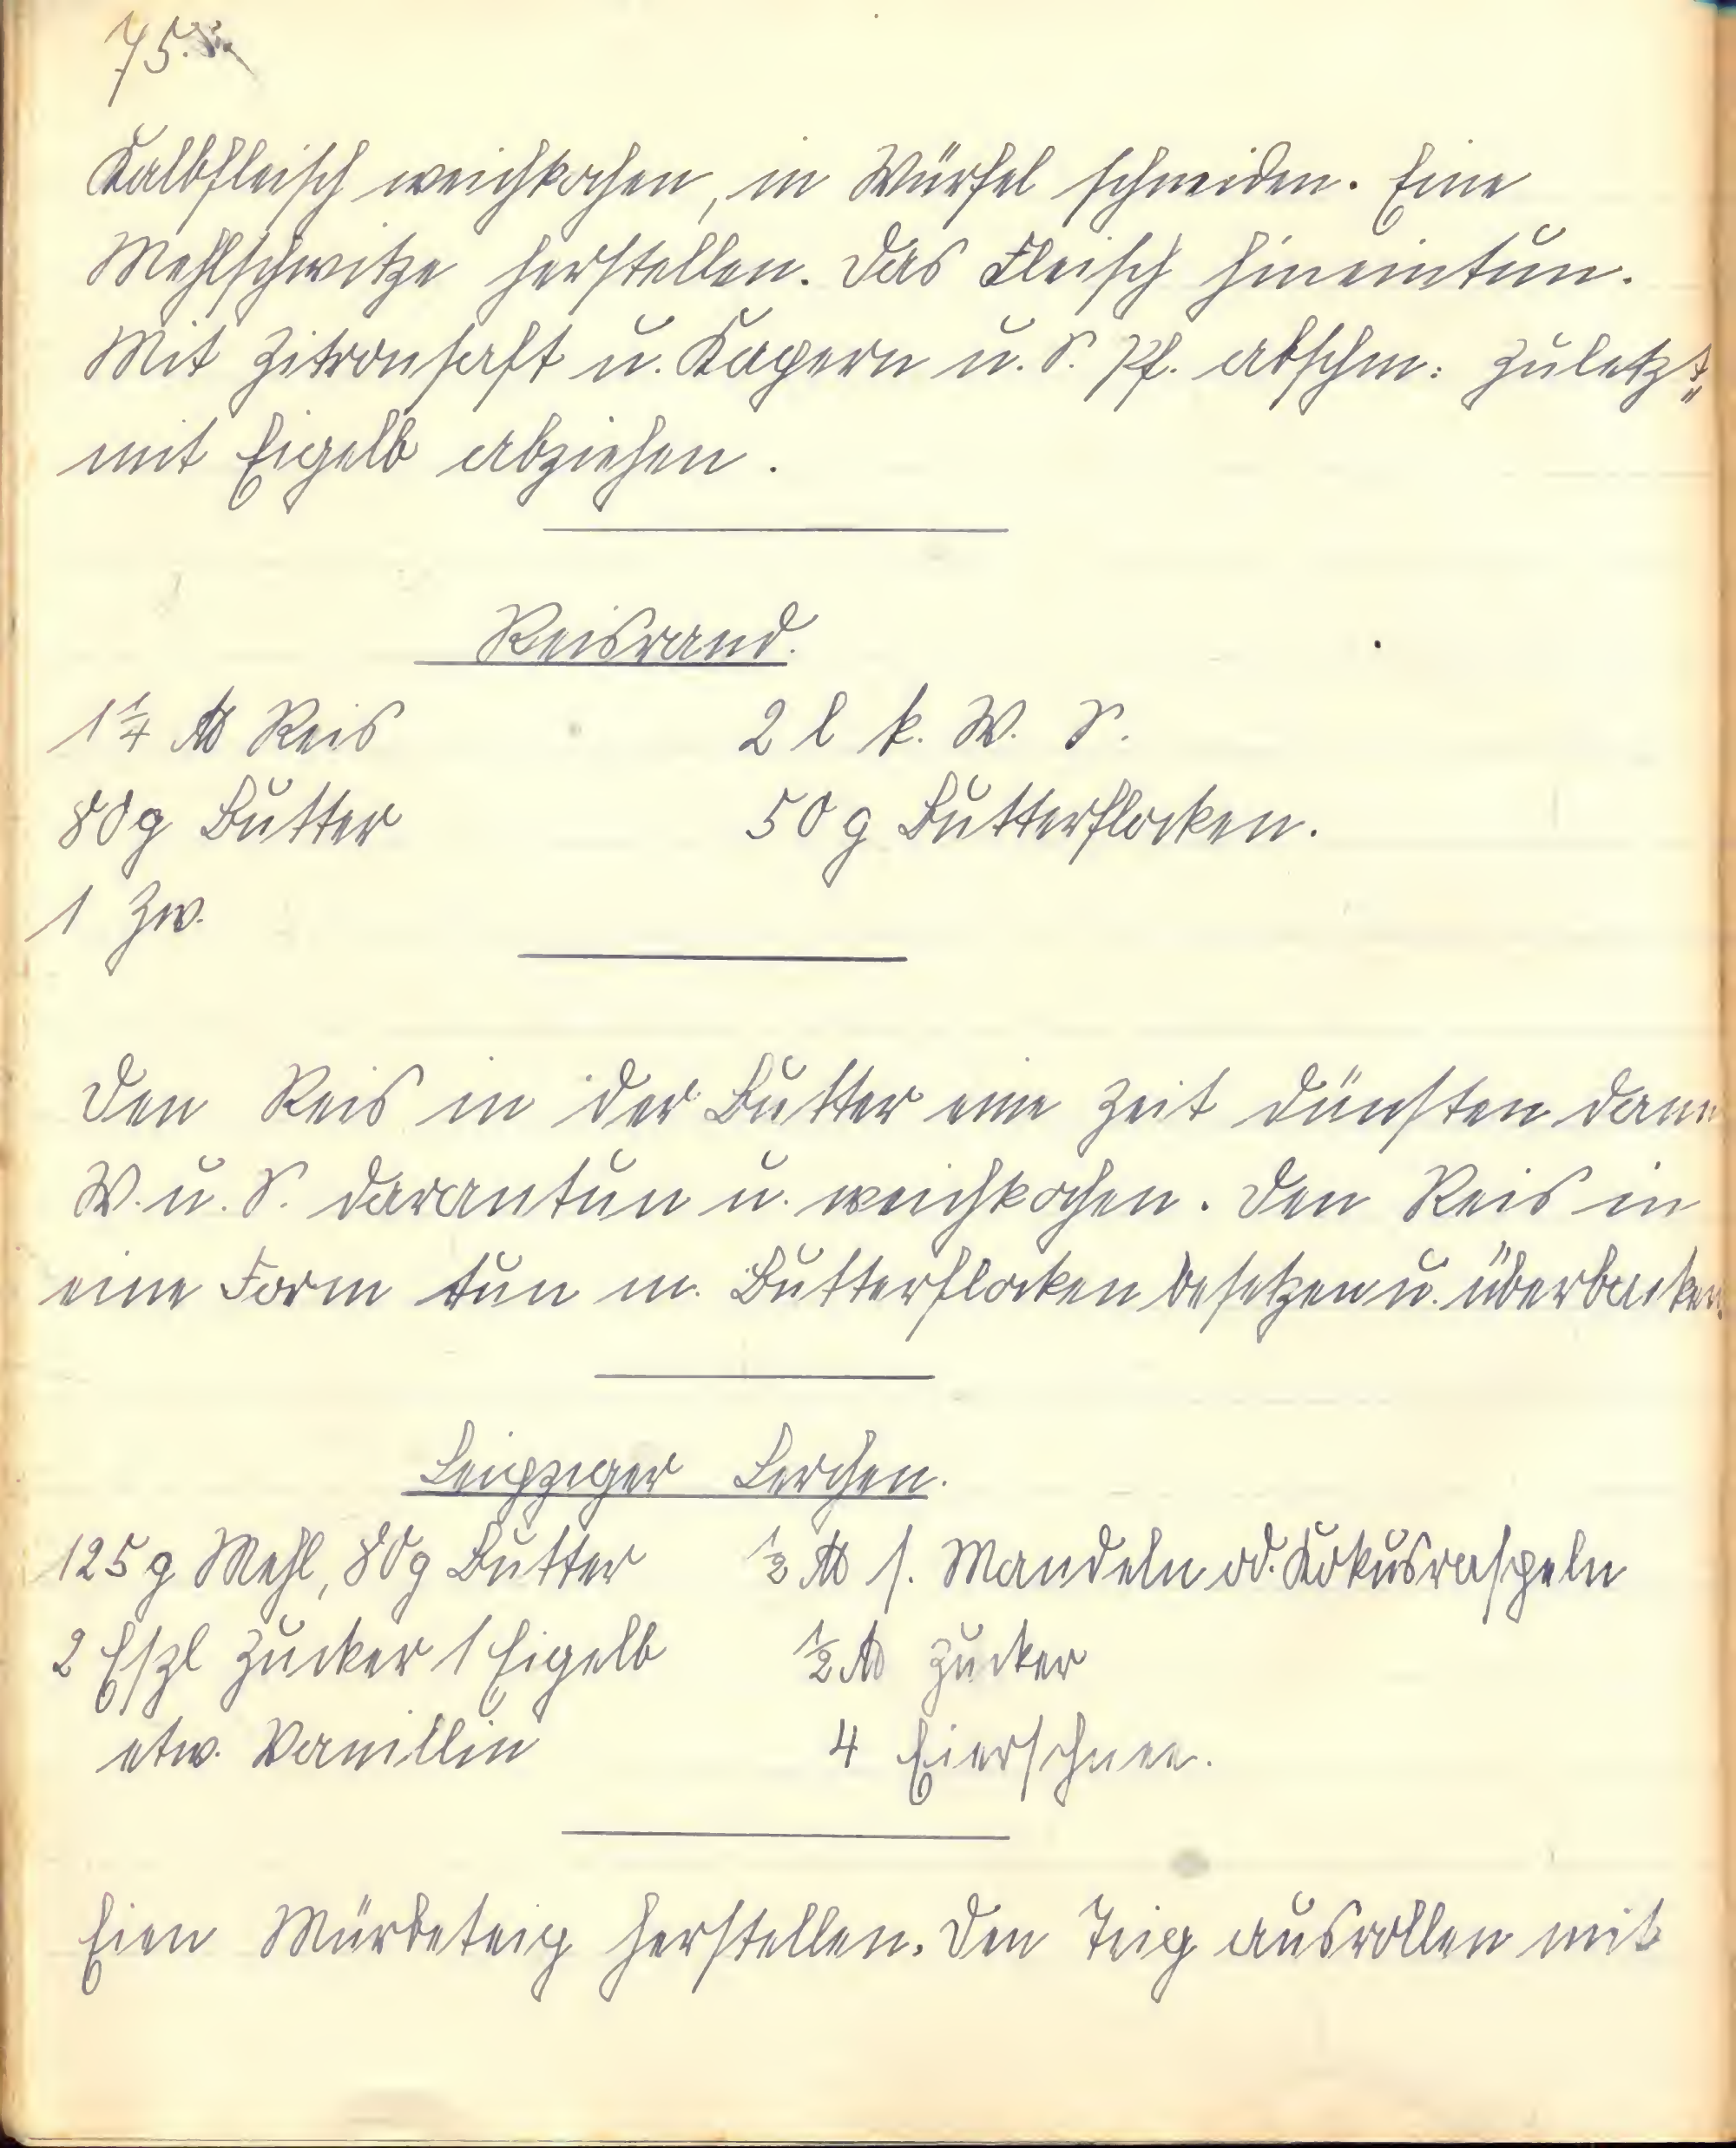 75.
Kalbfleisch weichkochen, in Würfel schneiden. Eine
Mehlschwitze herstellen. Das Fleisch hineintun.
Mit Zitronsaft u. Kapern u. S. Pf. abschm. zuletzt
mit Eigelb abziehen.
Reisrand.
1 1/4 ℔ Reis 2 l k. W. S.
80g Butter 50 g Butterflocken.
1 Zw.
Den Reis in der Butter eine Zeit dünsten dann
W. u. S. darantun u. weichkochen. Den Reis in
eine Form tun m. Butterflocken besetzen u. überbacken.
Leipziger Lerchen.
125 g Mehl, 80g Butter 1/2 ℔ s. Mandeln od. Kokusraspeln
2 Eszl Zucker 1 Eigelb 1/2 ℔ Zucker
etw. Vanillin 4 Eierschnee.
Eien Mürbeteig herstellen. Den Teig ausrollen mit